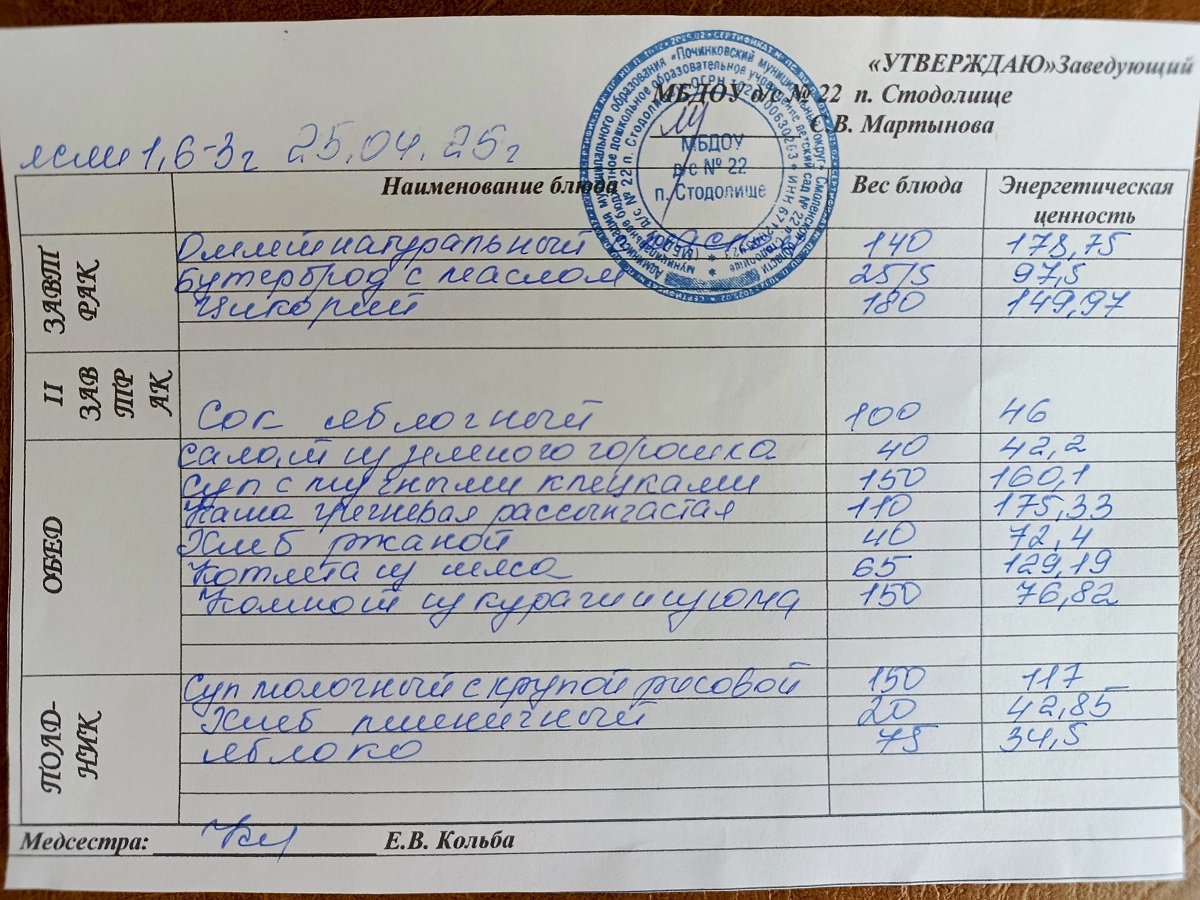 «УТВЕРЖДАЮ»Заведующий
МБДОУ д/с № 22 п. Стодолище
С.В. Мартынова
ясли 1,6-3г 25.04.25г
МБДОУ
д/с № 22
п. Стодолище
Наименование блюда Вес блюда Энергетическая ценность
ЗАВТРАК
Омлет натуральный 140 178,75
Бутерброд с маслом 25/5 97,5
Цикорий 180 149,97
II ЗАВТРАК
Сок яблочный 100 46
ОБЕД
Салат из зеленого горошка 40 42,2
Суп с мучными клецками 150 160,1
Каша гречневая рассыпчатая 110 175,33
Хлеб ржаной 40 72,4
Котлета из мяса 65 129,19
Компот из кураги и изюма 150 76,82
ПОЛД-НИК
Суп молочный с крупой рисовой 150 117
Хлеб пшеничный 20 42,85
яблоко 75 34,5
Медсестра: Е.В. Кольба